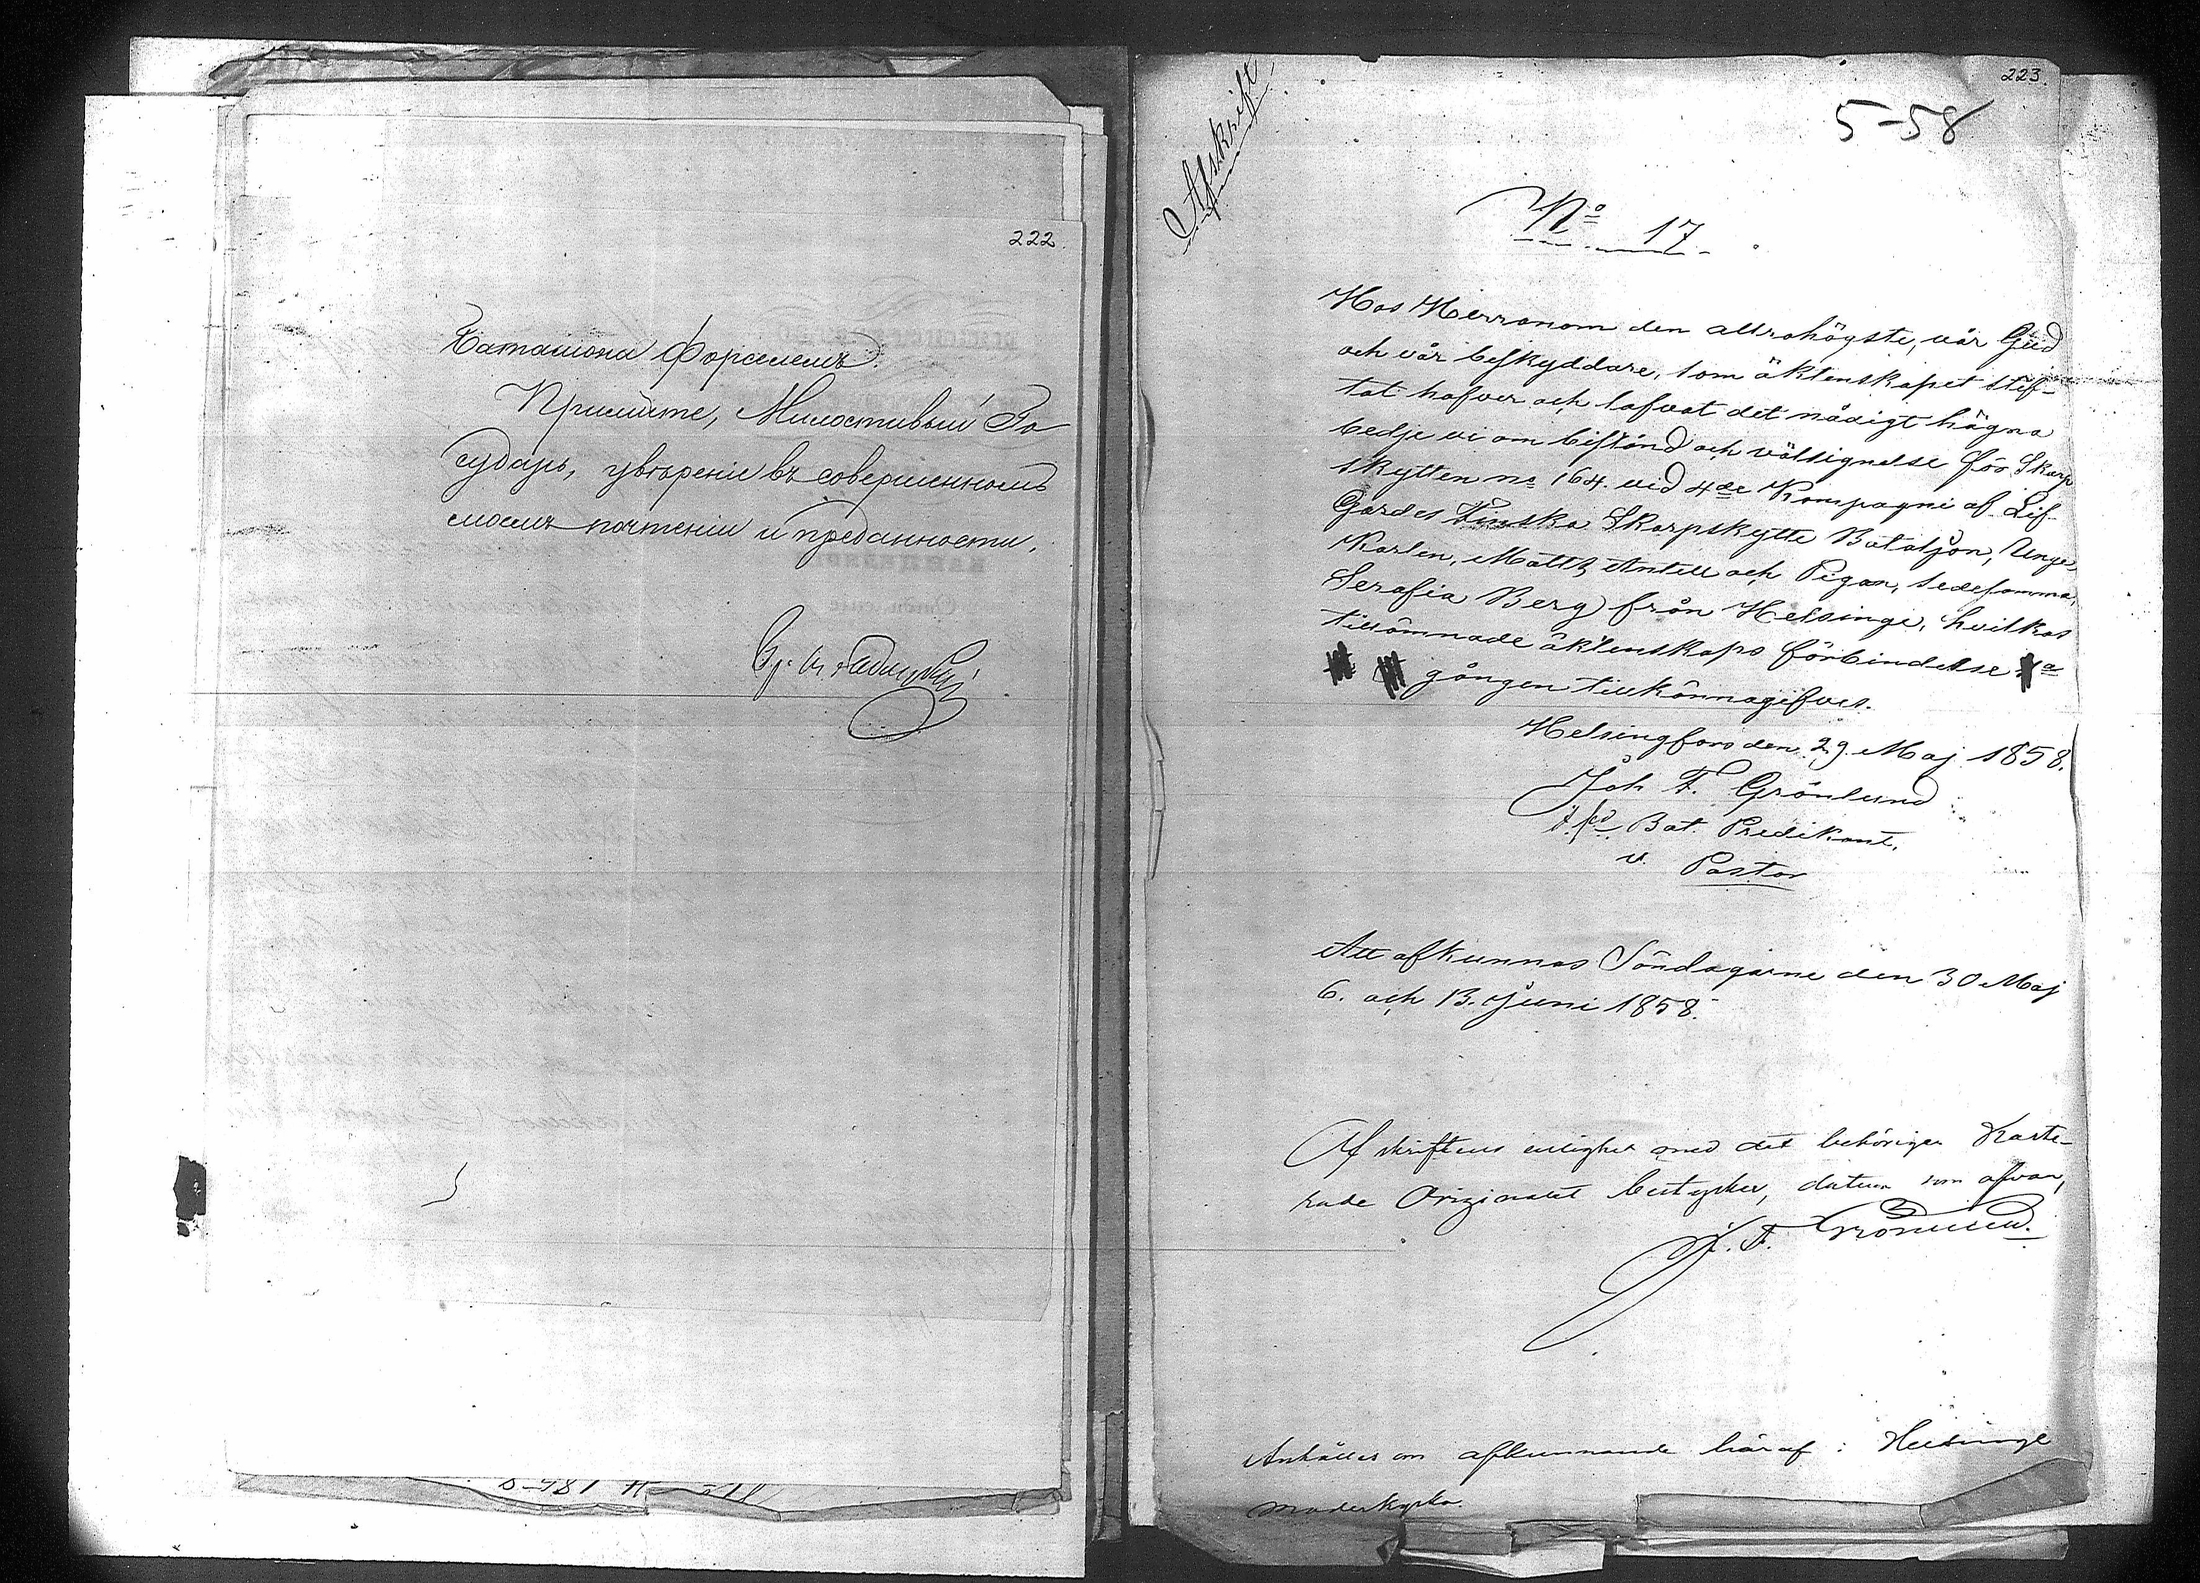 222.
Баталіона Форселемъ.
Примите, Милостивый Го-
сударь, увѣреніе въ совершенномъ
моемъ почтеніи и преданности.
223.
5-58
Afskrift
No 17.
Hos Herranom den allrahögste, vår Gud
och vår beskyddare, som äktenskapet stif-
tat hafver och lofvat det nådigt hägna
bedje vi om bistånd och välsignelse för Skarp
skytten no 164. vid 4de Kompagni af Lif-
Gardes Finska Skarpskytte Bataljon, Unge
Karlen, Matts Antell och Pigan, sedesamma,
Serafia Berg från Helsinge, hvilkas
tillämnade äktenskaps förbindelse
gången tillkännagifves.
Helsingfors den 29. Maj 1858.
Joh F. Grönlund
Bat. Predikant,
v. Pastor
Att afkunnas Söndagarne den 30 Maj
6. och 13. Juni 1858.
Afskriftens enlighet med det behörigen Karte-
rade Originalet betygar, datum som ofvan,
J. F. Grönlund.
Anhålles om afkunnande häraf i Helsinge
moderkyrka.